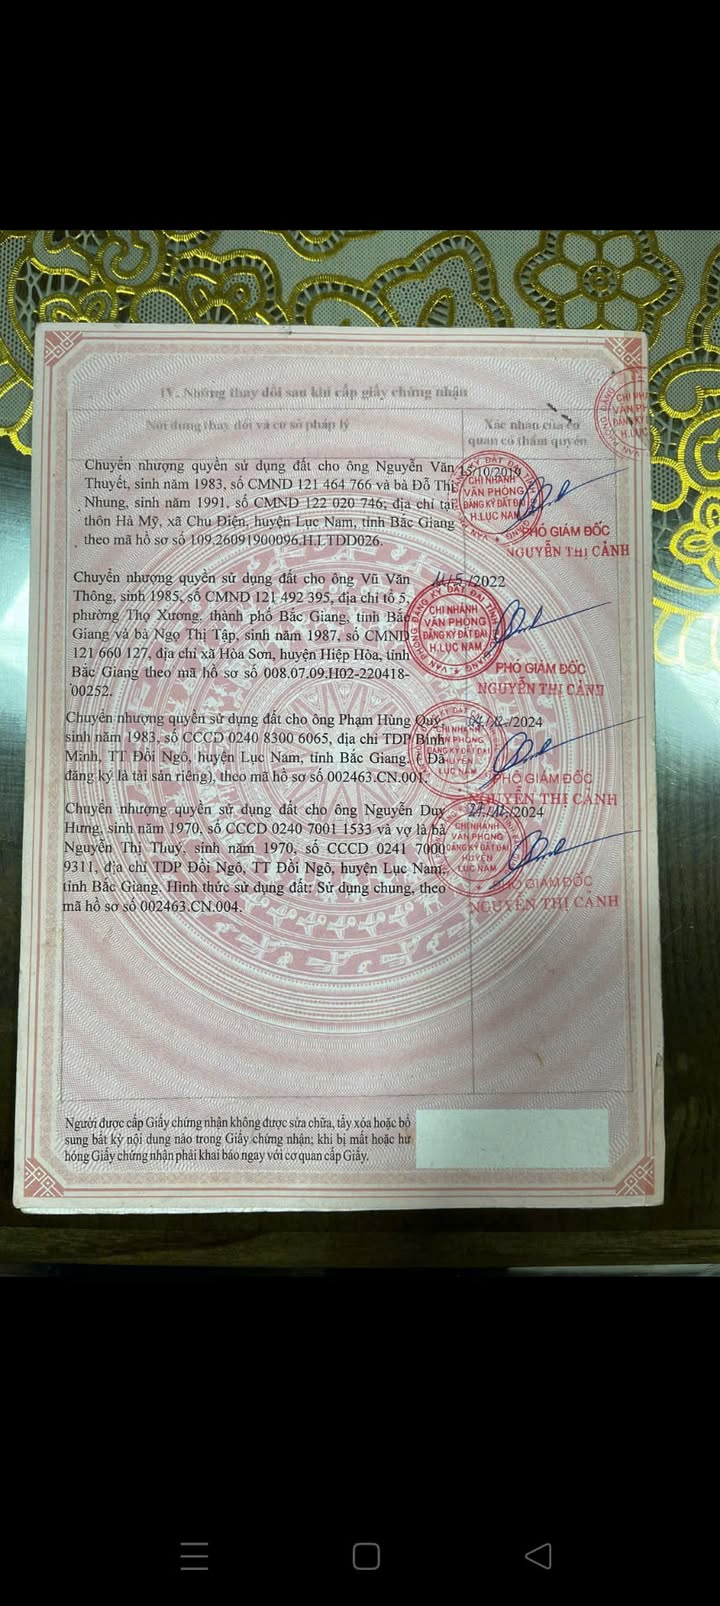 IV. Những thay đổi sau khi cấp giấy chứng nhận
Nội dung thay đổi và cơ sở pháp lý
Xác nhận của cơ
quan có thẩm quyền
Chuyển nhượng quyền sử dụng đất cho ông Nguyễn Văn
Thuyết, sinh năm 1983, số CMND 121 464 766 và bà Đỗ Thị
Nhung, sinh năm 1991, số CMND 122 020 746; địa chỉ tại
thôn Hà Mỹ, xã Chu Điện, huyện Lục Nam, tỉnh Bắc Giang
theo mã hồ sơ số 109.26091900096.H.LTDD026.
15/10/2019
CHI NHÁNH
VĂN PHÒNG
ĐĂNG KÝ ĐẤT ĐAI
H.LỤC NAM
PHÓ GIÁM ĐỐC
NGUYỄN THỊ CẢNH
Chuyển nhượng quyền sử dụng đất cho ông Vũ Văn
Thông, sinh 1985, số CMND 121 492 395, địa chỉ tổ 5,
phường Thọ Xương, thành phố Bắc Giang, tỉnh Bắc
Giang và bà Ngọ Thị Tập, sinh năm 1987, số CMND
121 660 127, địa chỉ xã Hòa Sơn, huyện Hiệp Hòa, tỉnh
Bắc Giang theo mã hồ sơ số 008.07.09.H02-220418-
00252.
11/5/2022
VĂN PHÒNG ĐĂNG KÝ ĐẤT ĐAI TỈNH BẮC GIANG
CHI NHÁNH
VĂN PHÒNG
ĐĂNG KÝ ĐẤT ĐAI
H.LỤC NAM
PHÓ GIÁM ĐỐC
NGUYỄN THỊ CẢNH
Chuyển nhượng quyền sử dụng đất cho ông Phạm Hùng Quý,
sinh năm 1983, số CCCD 0240 8300 6065, địa chỉ TDP Bình
Minh, TT Đồi Ngô, huyện Lục Nam, tỉnh Bắc Giang. ( Đã
đăng ký là tài sản riêng), theo mã hồ sơ số 002463.CN.001.
/12/2024
CHI NHÁNH
VĂN PHÒNG
ĐĂNG KÝ ĐẤT ĐAI
HUYỆN
LỤC NAM
PHÓ GIÁM ĐỐC
NGUYỄN THỊ CẢNH
Chuyển nhượng quyền sử dụng đất cho ông Nguyễn Duy
Hưng, sinh năm 1970, số CCCD 0240 7001 1533 và vợ là bà
Nguyễn Thị Thuỷ, sinh năm 1970, số CCCD 0241 7000
9311, địa chỉ TDP Đồi Ngô, TT Đồi Ngô, huyện Lục Nam,
tỉnh Bắc Giang. Hình thức sử dụng đất: Sử dụng chung, theo
mã hồ sơ số 002463.CN.004.
27/12/2024
CHI NHÁNH
VĂN PHÒNG
ĐĂNG KÝ ĐẤT ĐAI
HUYỆN
LỤC NAM
PHÓ GIÁM ĐỐC
NGUYỄN THỊ CẢNH
Người được cấp Giấy chứng nhận không được sửa chữa, tẩy xóa hoặc bổ
sung bất kỳ nội dung nào trong Giấy chứng nhận; khi bị mất hoặc hư
hỏng Giấy chứng nhận phải khai báo ngay với cơ quan cấp Giấy.